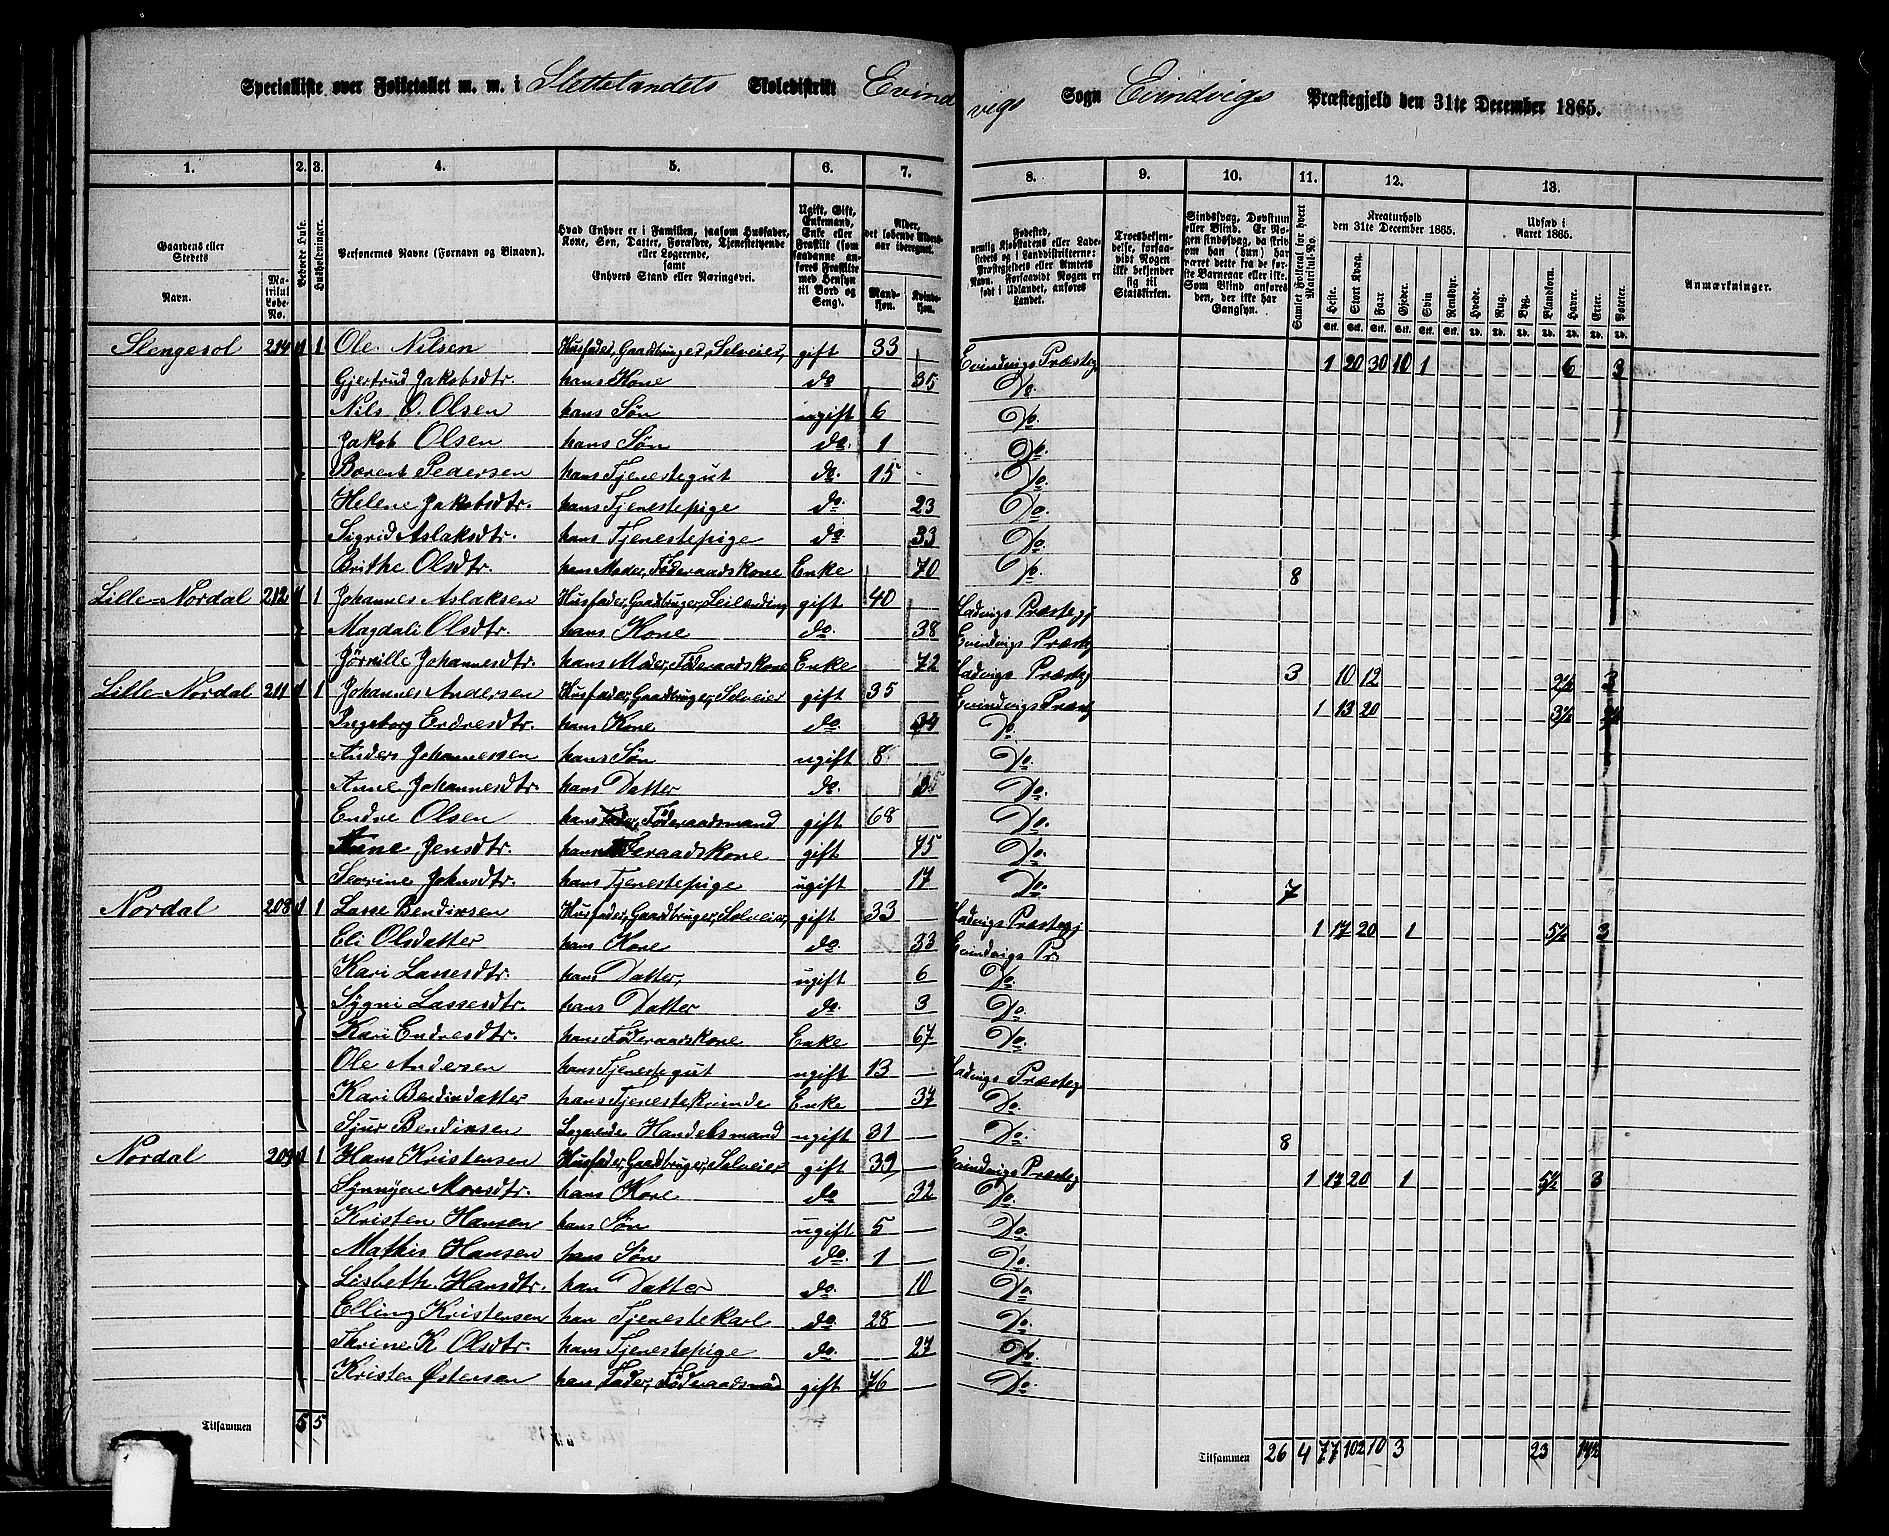 Specialliste over Folketallet m. m. i Slettelandets Skoledistrikt Evindvigs Sogn Eivindvigs Præstegjeld den 31te December 1865.
1. 2. 3. 4. 5. 6. 7. 8. 9. 10. 11. 12. 13.
Gaardens eller Stedets Navn. Matrikul Løbe-No. Beboede Huse. Husholdninger. Personernes Navne (Fornavn og Binavn). Hvad Enhver er i Familien, saasom Husfader, Kone, Søn, Datter, Forældre, Tjenestetyende eller Logerende, samt Enhvers Stand eller Næringsvei. Ugift, Gift, Enkemand, Enke eller Fraskilt (som saadanne anføres Fraskilte med Hensyn til Bord og Seng). Alder, det løbende Aldersaar iberegnet. Mandkjøn. Kvindekjøn.
Fødested, nemlig Kjøbstadens eller Ladestedets og i Landdistrikterne: Præstegjeldets eller Amtets Navn. Forsaavidt Nogen er født i Udlandet, anføres Landet. Troesbekjendelse, forsaavidt Nogen ikke bekjender sig til Statskirken. Sindssvag, Døvstum eller Blind. Er Nogen sindssvag, da skriv om han (hun) har været dette fra de første Barneaar eller ikke. Som Blind anføres den, der ikke har Gangsyn. Samlet Folketal for hvert Matrikul-No. Kreaturhold den 31te December 1865. Udsæd i Aaret 1865. Anmærkninger.
Heste. Stort Kvæg. Faar. Gjeder. Svin. Rensdyr. Hvede. Rug. Byg. Blandkorn. Havre. Erter. Poteter.
Slengesol 214 1 1 Ole Nilsen Husfader, Gaardbruger, Selveier, gift 33 Evindvigs Præstegj 1 20 30 10 1 6 3
Gjertrud Jakobsdtr. hans Kone do 35 Do
Nils O. Olsen hans Søn ugift 6 Do
Jakob Olsen hans Søn do. 1 Do
Bærent Pedersen hans Tjenestegut do. 15 Do
Helene Jakobsdtr. hans Tjenestepige do. 23 Do
Sigrid Aslaksdtr. hans Tjenestepige do 33 Do
Brithe Olsdtr. hans Moder, Føderaadskone Enke 70 Do 8
Lille Nordal 212 1 1 Johannes Aslaksen Husfader, Gaardbruger, Leilænding gift 40 Ladvigs Præstegj
Magdali Olsdtr. hans Kone do. 38 Evindvigs Præstegj
Johannesdtr. hans Moder, Føderaadskone Enke 72 Ladvigs Præstegj 3 10 12 2½
Lille Nordal 211 1 1 Johannes Andersen Husfader, Gaardbruger, Selveier gift 35 Evindvigs Præstegj 1 13 20 3½
Ingeborg Endresdtr. hans Kone do. 34 Do
Anders Johannessen hans Søn ugift 8 Do
Anne Johannesdtr. hans Datter do. Do
Endre Olsen hans Fader, Føderaadsmand gift 68 Do
Anne Jensdtr. gift 75 Do
Severine Johnsdtr. hans Tjenestepige ugift 17 Do 7
Nordal 208 1 1 Lasse Bendixsen Husfader, Gaardbruger, Selveier, gift 33 Ladvigs Præstegj 1 17 20 1 5½ 3
Eli Olsdatter hans Kone do. 33 Evindvigs Pr.
Kari Lassesdtr. hans Datter, ugift 6 Do
Sygni Lassesdtr. hans Datter do. 3 Do
Kari Endresdtr. hans Føderaadskone Enke 67 Do
Ole Andersen hans Tjenestegut ugift 13 Ladvigs Præstegj
Kari Bendixdatter hans Tjenestekvinde Enke 37 Do
Sjur Bendixsen Logerende Handelsmand ugift 31 Do 8
Nordal 209 1 1 Hans Kristensen Husfader, Gaardbruger, Selveier gift 39 Evindvigs Præstegj 1 17 20 1 5½ 3
Synnøve Monsdtr. hans Kone do 32 Do
Kristen Hansen hans Søn ugift 5 Do
Mathis Hansen hans Søn do. 1 Do
Lisbeth Hansdtr. han Datter do. 10 Do
Elling Kristensen han Tjenestekarl do. 28 Do
Thrine K Olsdtr. hans Tjenestepige do. 27 Do
Kristen Østensen hans Fader, Føderaadsmd gift 76 Do
Tilsammen 5 5 Tilsammen 26 4 77 102 10 3 23 14½